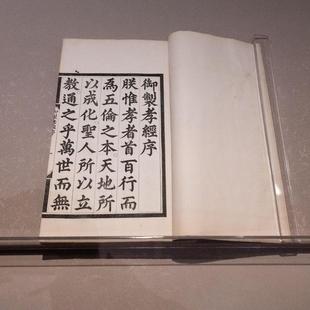 御製孝經序
朕惟孝者首百行而
為五倫之本天地所
以成化聖人所以立
教通之乎萬世而無